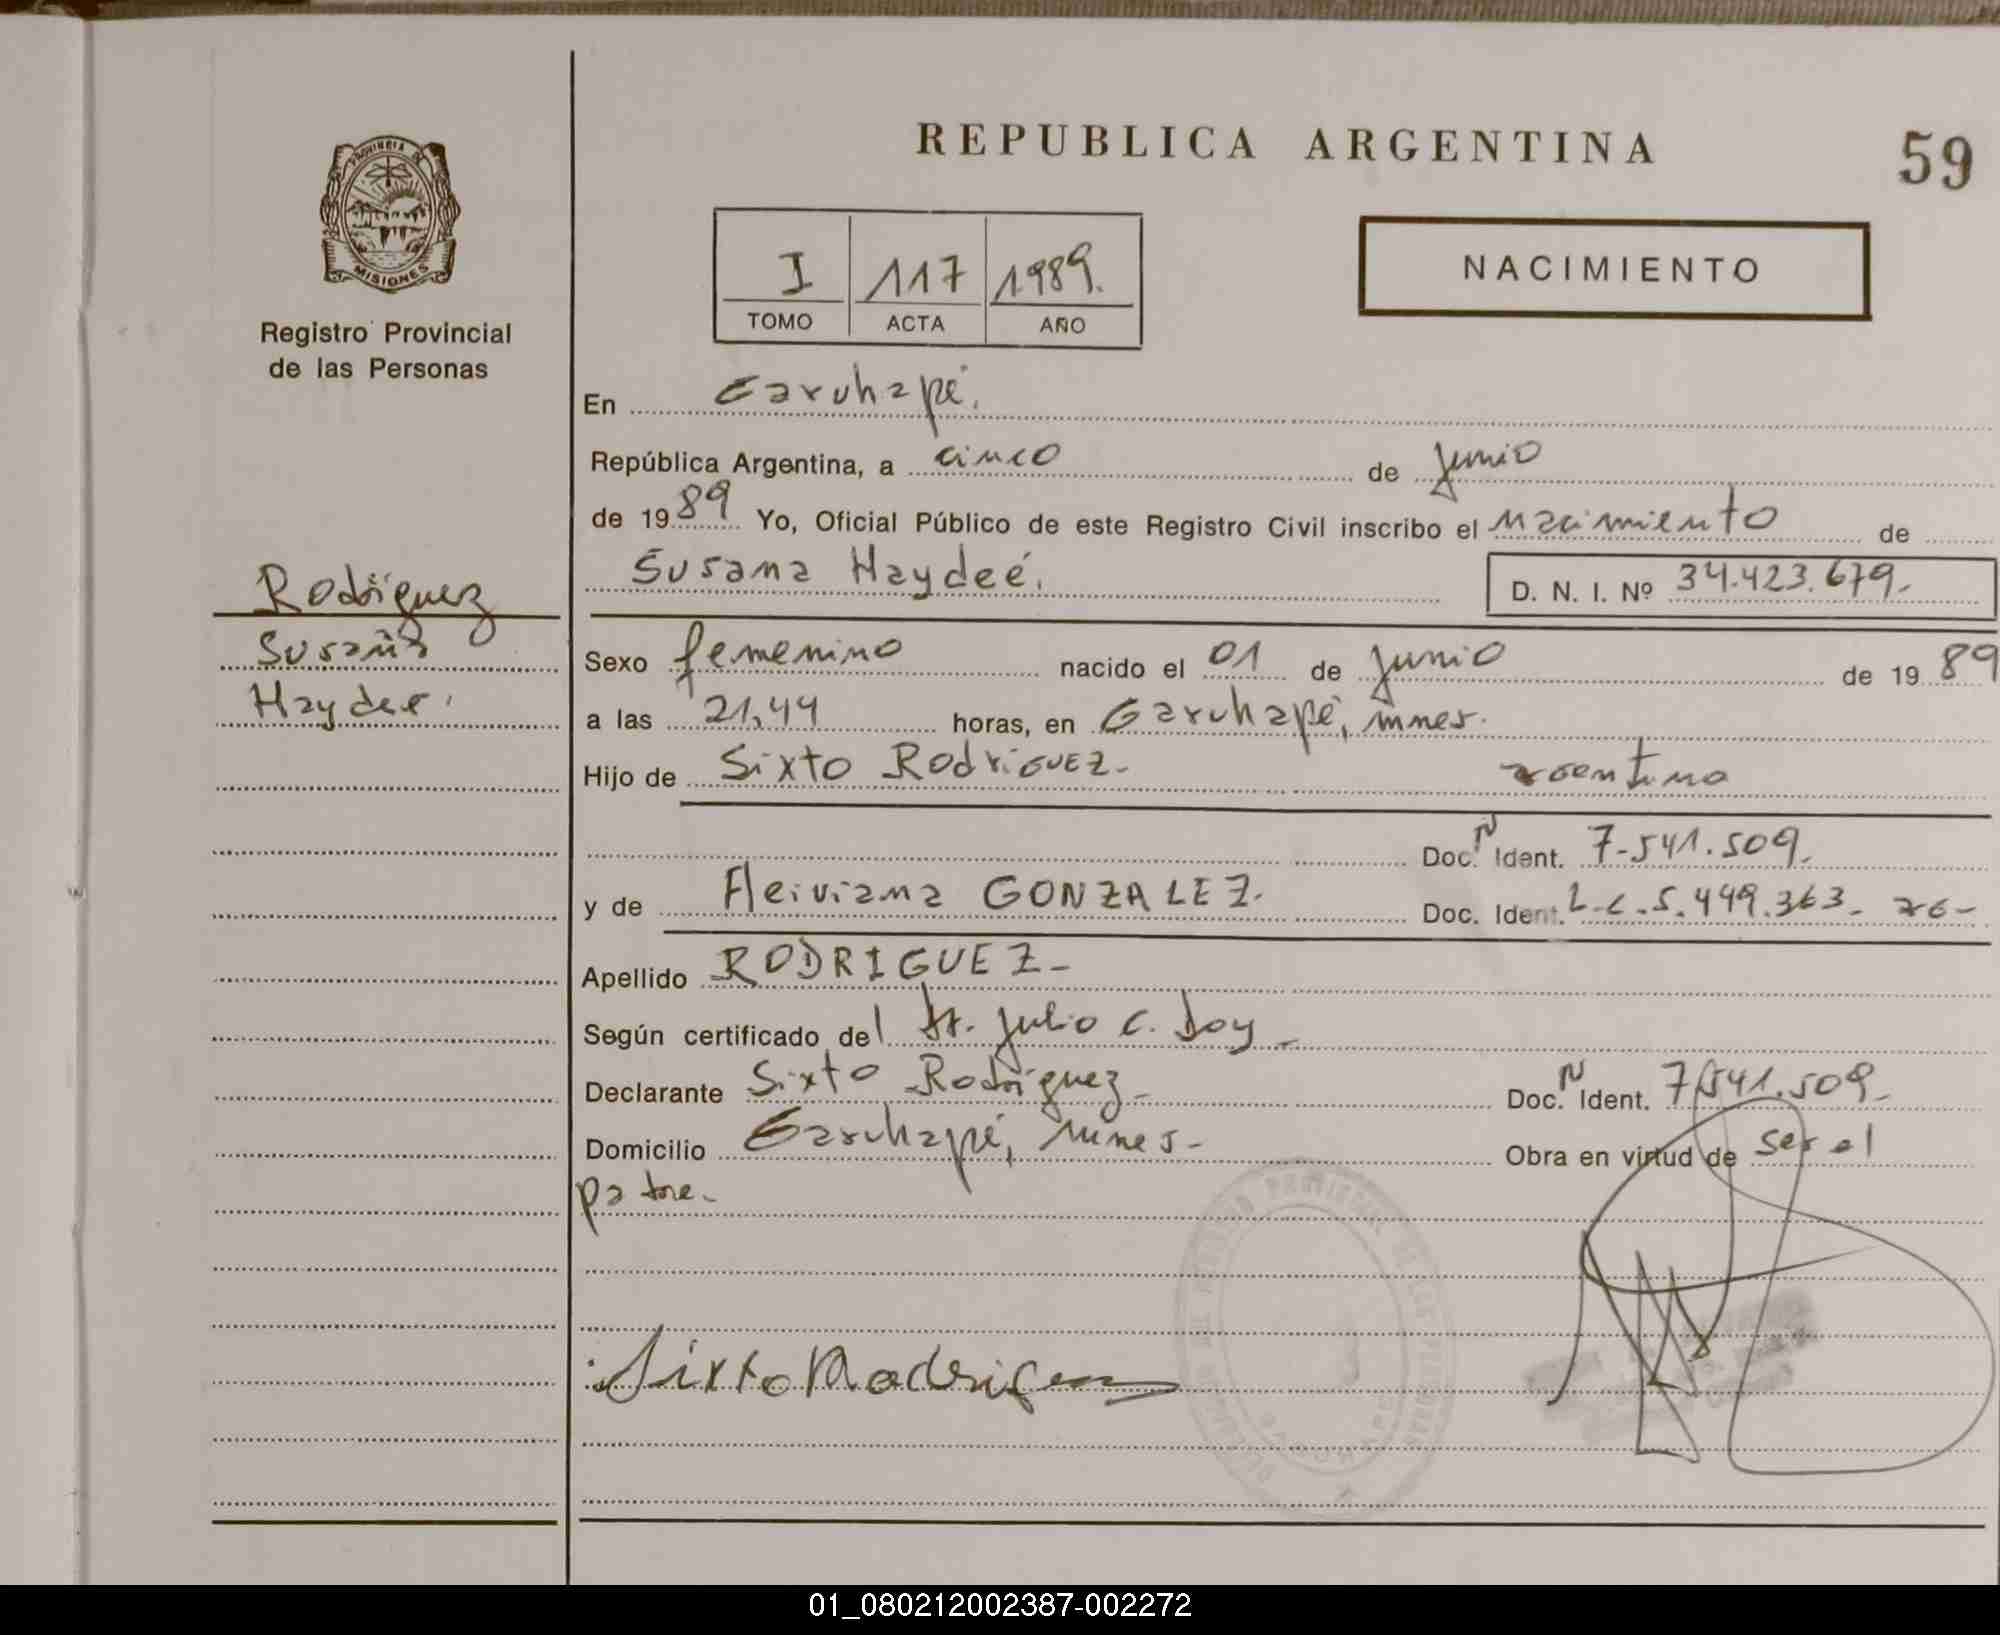 REPUBLICA ARGENTINA
59
PROVINCIA DE
MISIONES
Registro Provincial
de las Personas
I 117 1989.
TOMO ACTA AÑO
NACIMIENTO
En Garuhapé.
República Argentina, a cinco de junio
de 1989 Yo, Oficial Público de este Registro Civil inscribo el nacimiento de
Susana Haydeé.
D. N. I. Nº 34.423.679.-
Rodríguez
Susana
Haydee.
Sexo femenino nacido el 01 de junio de 1989
a las 21,44 horas, en Garuhapé, mnes.
Hijo de Sixto RodriGUEZ.- argentino
Doc. N Ident. 7.541.509.
y de Fleiviana GONZALEZ. Doc. Ident. L.C.5.449.363.- arg-
Apellido RODRIGUEZ-
Según certificado del Dr. Julio C. Doy-
Declarante Sixto Rodríguez- Doc. N Ident. 7.541.509.-
Domicilio Garuhapé, mnes- Obra en virtud de ser el
padre.-
Sixto Rodriguez
01_080212002387-002272